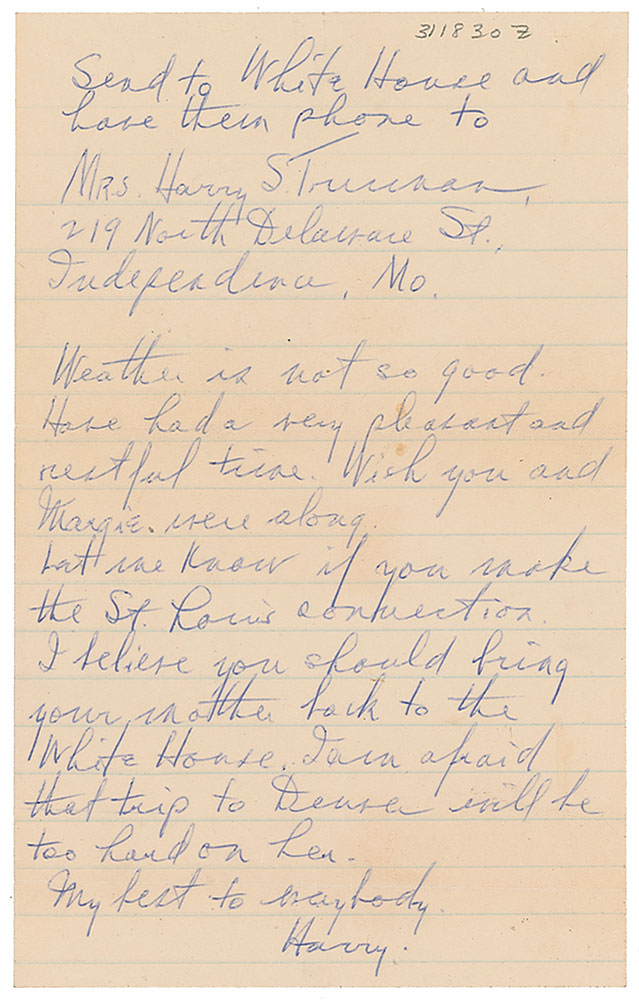 311830Z
Send to White House and
have them phone to
Mrs. Harry S. Truman,
219 North Delaware St.,
Independence, Mo.
Weather is not so good.
Have had a very pleasant and
restful time. Wish you and
Margie. were along.
Let me know if you make
the St. Louis connection.
I believe you should bring
your mother back to the
White House. I am afraid
that trip to Denver will be
too hard on her.
My best to everybody.
Harry.